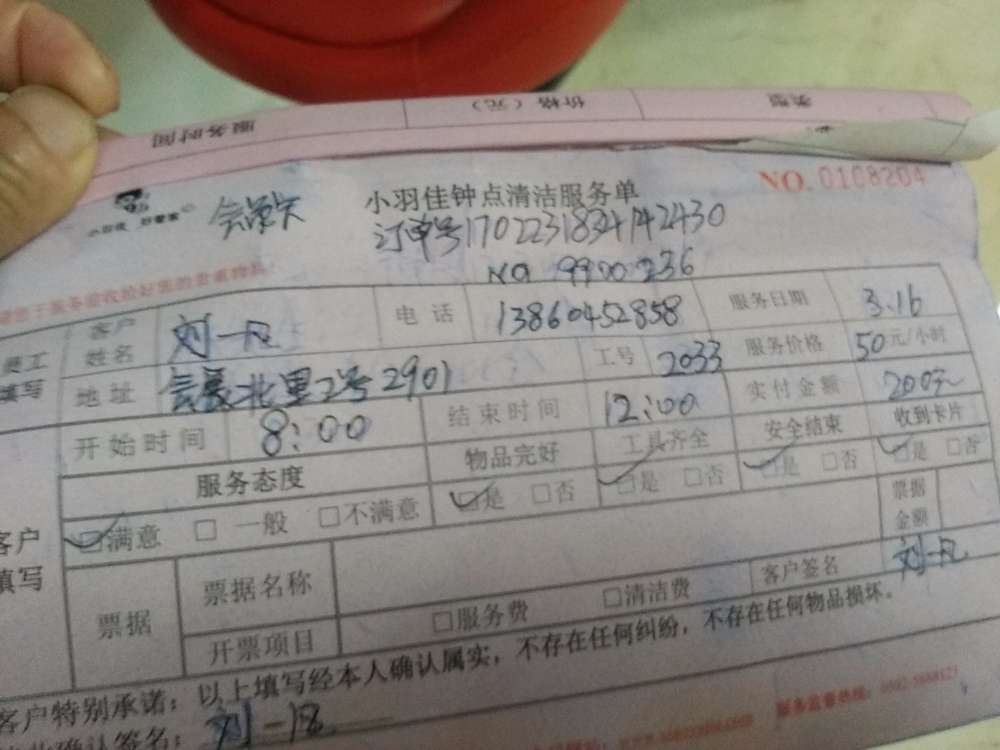 类型 价格（元） 服务时间
NO. 0108204
小羽佳 好管家 会员卡 小羽佳钟点清洁服务单
订单号1702231834142430
NO 9900236
员工填写 客户姓名 刘一凡 电话 13860452858 服务日期 3.16
地址 会展北里2号2901 工号 2033 服务价格 50元/小时
开始时间 8:00 结束时间 12:00 实付金额 200元
服务态度 物品完好 工具齐全 安全结束 收到卡片
客户填写 ☑满意 □一般 □不满意 ☑是 □否 ☑是 □否 ☑是 □否 ☑是 □否
票据 票据名称 票据金额
开票项目 □服务费 □清洁费 客户签名 刘一凡
客户特别承诺：以上填写经本人确认属实，不存在任何纠纷，不存在任何物品损坏。
确认签名：刘一凡
服务监督热线：